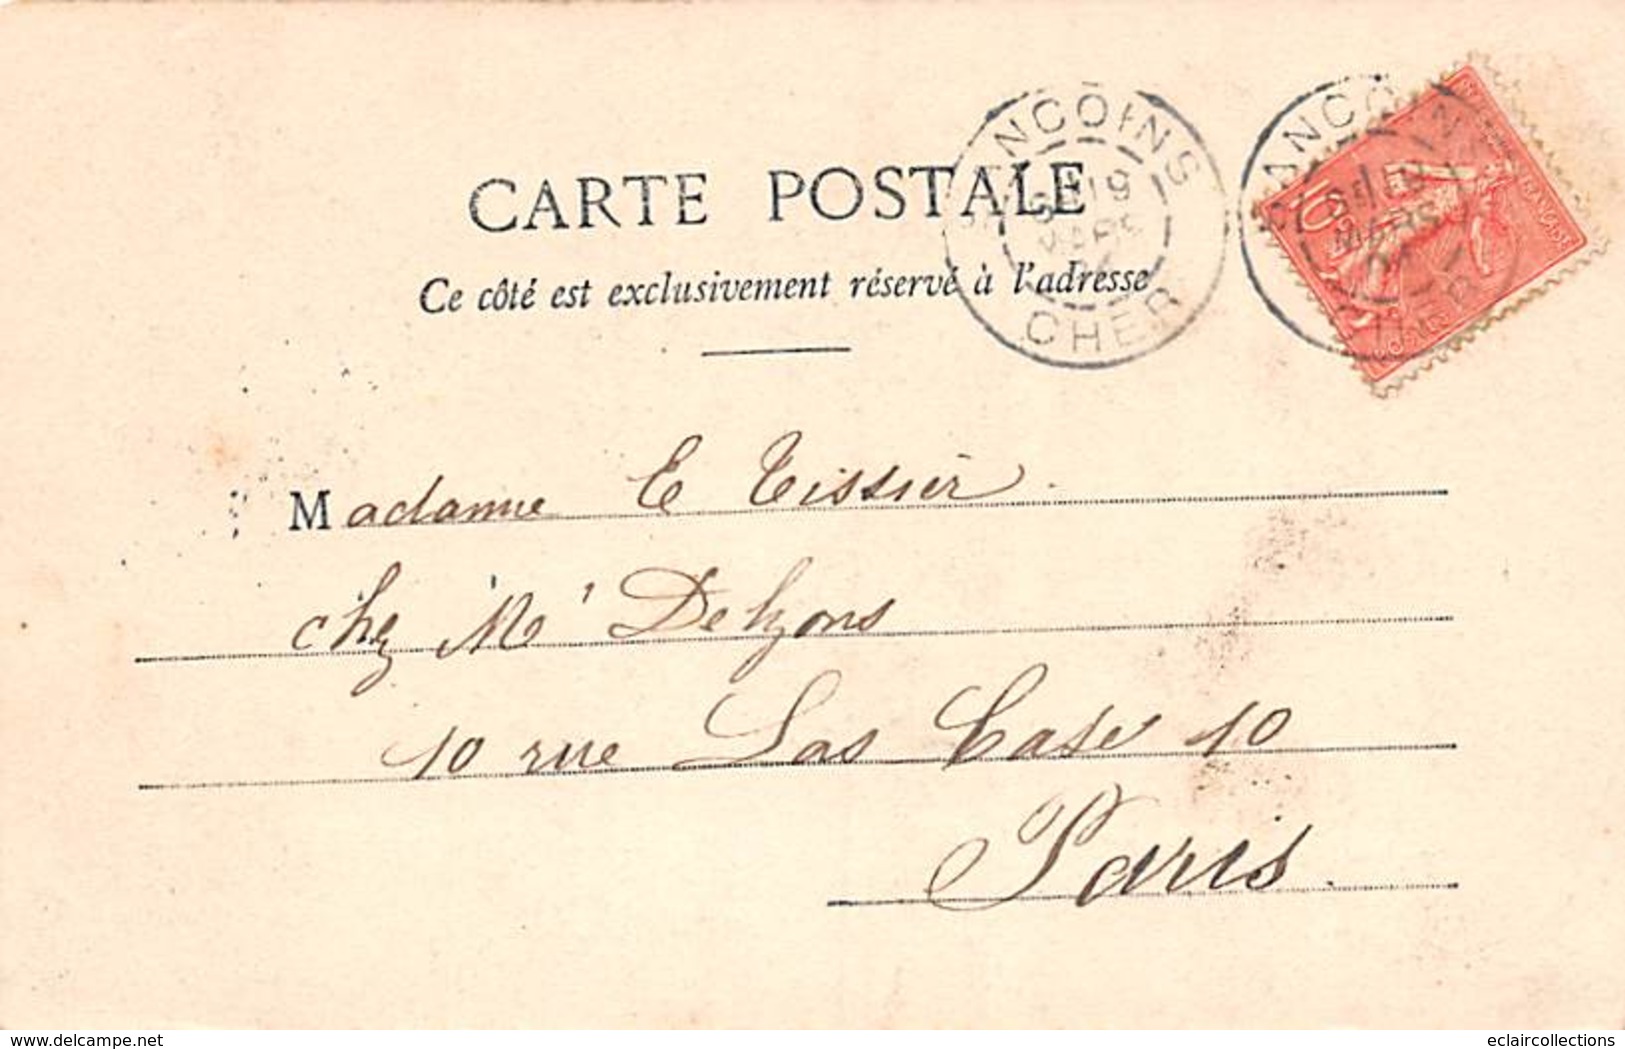 CARTE POSTALE
Ce côté est exclusivement réservé à l'adresse
SANCOINS
19
MARS
CHER
SANCOINS
MARS
04
10
Madame E Tissier
chez Mr Delzons
10 rue Las Case 10
Paris.
delcampe.net
eclaircollections